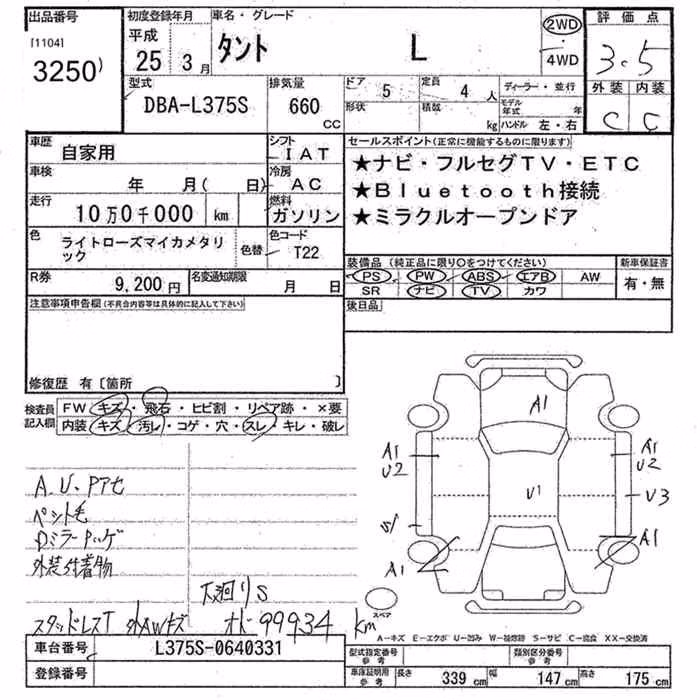 出品番号
[1104]
3250
初度登録年月
平成
25 3月
車名・グレード
タント L
2WD
4WD
評価点
3.5
外装 内装
C C
型式
DBA-L375S
排気量
660
CC
ドア 5
形状
定員 4 人
積載 kg
ディーラー・並行
モデル年式 年
ハンドル 左・右
車歴
自家用
シフト
IAT
車検
年 月( 日)
冷房
AC
走行
10万0千000 km
燃料
ガソリン
色
ライトローズマイカメタリック
色替
色コード
T22
R券
9,200円
名変通知期限
月 日
セールスポイント(正常に機能するものに限ります)
★ナビ・フルセグTV・ETC
★Bluetooth接続
★ミラクルオープンドア
装備品(純正品に限り〇をつけてください)
PS PW ABS エアB AW
SR ナビ TV カワ
新車保証書
有・無
注意事項申告欄(不具合内容等は具体的に記入して下さい)
後日品
修復歴 有〔箇所 〕
検査員記入欄
FW キズ・飛石・ヒビ割・リペア跡・×要
内装 キズ・汚レ・コゲ・穴・スレ・キレ・破レ
A.U.Pアセ
ペット毛
外装付着物
下廻りS
スタッドレスT 外AWキズ オドー99934 km
A1
A1
U2
A1
U2
U1
U3
S1
A1
A1
スペア
A-キズ E-エクボ U-凹み W-補修跡 S-サビ C-腐食 XX-交換済
車台番号
L375S-0640331
登録番号
型式指定番号
参考
類別区分番号
参考
車庫証明用
参考
長さ 339 cm 幅 147 cm 高さ 175 cm